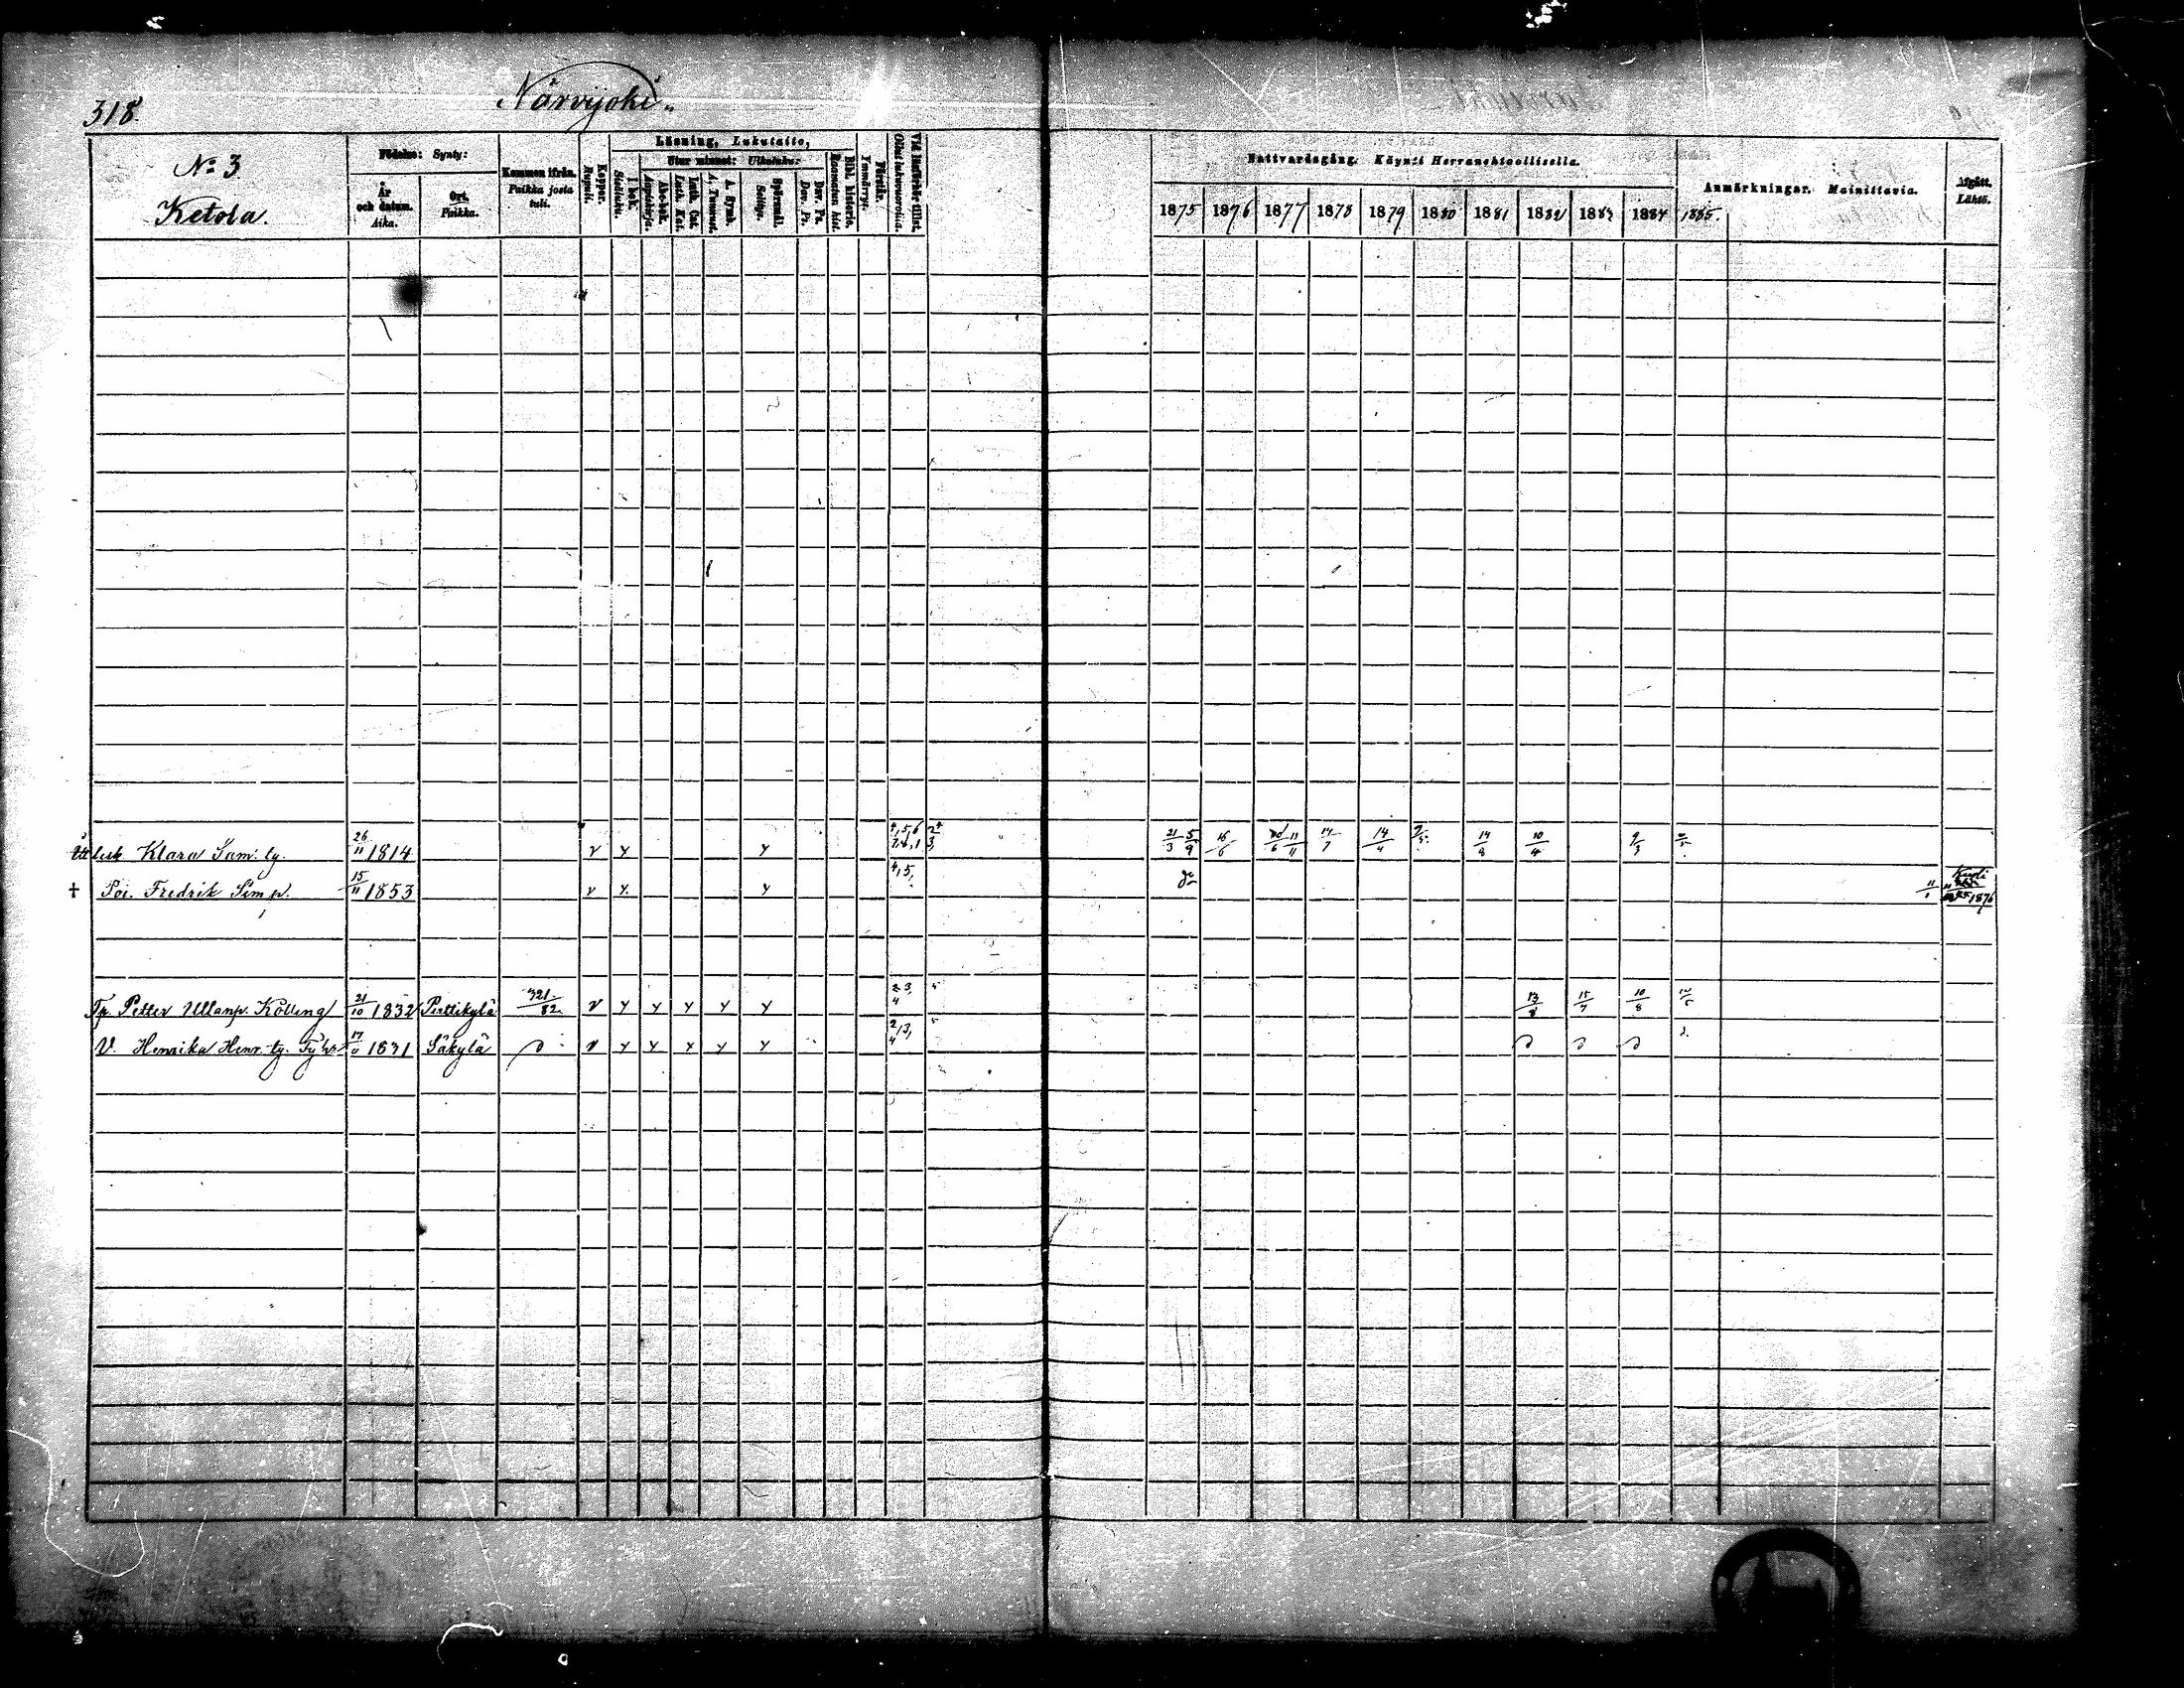 318.
Närvijoki
№ 3
Ketola.
Födelse: Synty:
År och datum. Aika.
Ort. Paikka.
Kommen ifrån. Paikka josta tuli.
Koppor. Rupuli.
Läsning, Lukutaito,
I bok. Sisäluku.
Utur minnet: Ulkoluku:
Abc-bok. Aapiskirja.
Luth. Cat. Luth. Kat.
A. Symb. A. Tunnust.
Spörsmål. Selitys.
Dav. Ps. Dav. Ps.
Bibl. historia. Raamatun hist.
Förstår. Ymmärrys.
Vid läsförhör tillst. Ollut lukuvuorolla.
Nattvardsgång. Käynti Herranehtoollisella.
1875 1876 1877 1878 1879 1880 1881 1882 1883 1884 1885.
Anmärkningar. Mainittavia.
Afgått. Lähtö.
lesk. Klara Sam. ty. 26/11 1814 v y y 21/3 5/9 16/6 14/7 14/4 14/8 10/4 9/3
† Poi. Fredrik Sim. p. 15/11 1853 v y y 4,5, Kuoli 1876
Petter Ullanp. Kölling 21/10 1832 Punttikylä 321/82 v y y y y y 2 3, 4 13/8 15/7 10/8
V. Henrika Henr. ty. 1831 Säkylä v y y y y y 2,3, 4